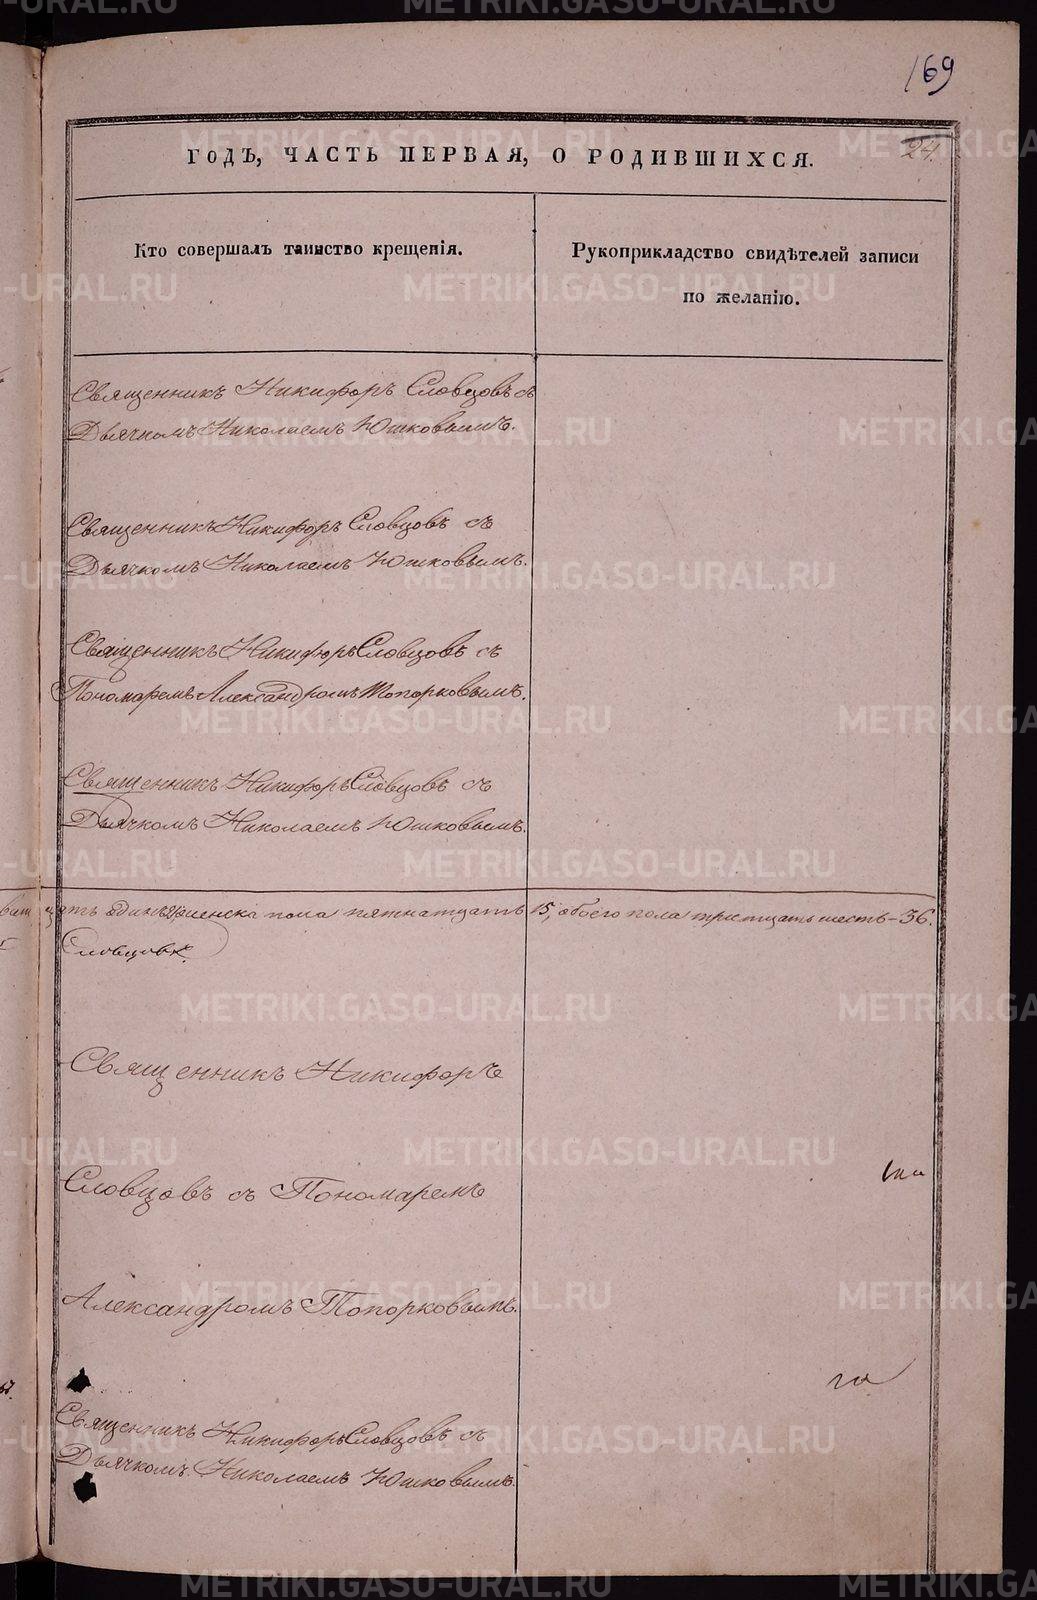 169
24.
ГОДЪ, ЧАСТЬ ПЕРВАЯ, О РОДИВШИХСЯ.
Кто совершалъ таинство крещенія.
Рукоприкладство свидѣтелей записи
по желанію.
Священникъ Никифоръ Словцовъ съ
Дьячкомъ Николаемъ Юшковымъ.
Священникъ Никифоръ Словцовъ съ
Дьячкомъ Николаемъ Юшковымъ.
Священникъ Никифоръ Словцовъ съ
Пономаремъ Александромъ Топорковымъ.
Священникъ Никифоръ Словцовъ съ
Дьячкомъ Николаемъ Юшковымъ.
цать одинъ, женска пола пятнатцать 15, обоего пола тритцать шесть - 36.
Словцовъ.
Священникъ Никифоръ
Словцовъ съ Пономаремъ
Александромъ Топорковымъ.
Священникъ Никифоръ Словцовъ съ
Дьячкомъ Николаемъ Юшковымъ.
METRIKI.GASO-URAL.RU